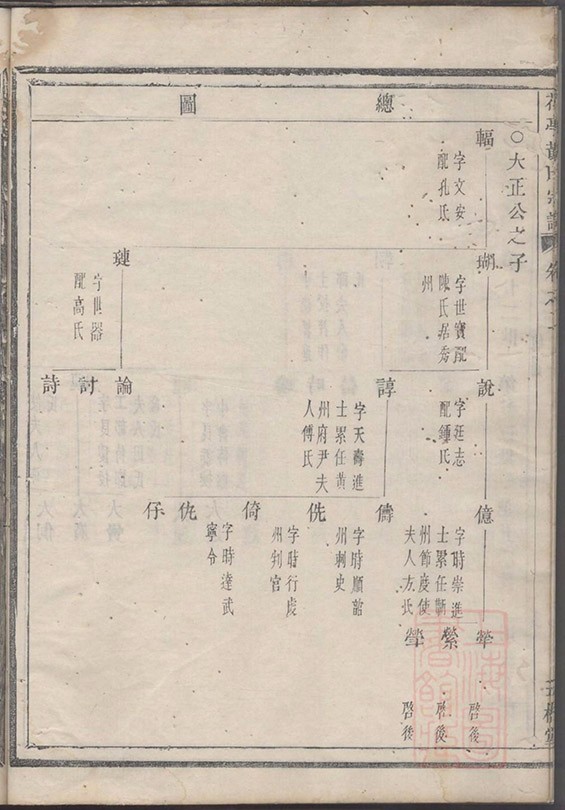 總圖
○大正公之子
輻
字文安
配孔氏
瑚
字世寶配
陳氏居秀
州
璉
字世器
配高氏
說
字廷志
配鍾氏
諄
字天壽進
士累任黃
州府尹夫
人傅氏
論
討
詩
億
字時崇進
士累任鄆
州節度使
夫人方氏
儔
侁
字時順
州刺史
倚
字時行虔
州判官
仇
字時達武
寧令
仔
犖
啓後
縈
啓後
塋
啓後